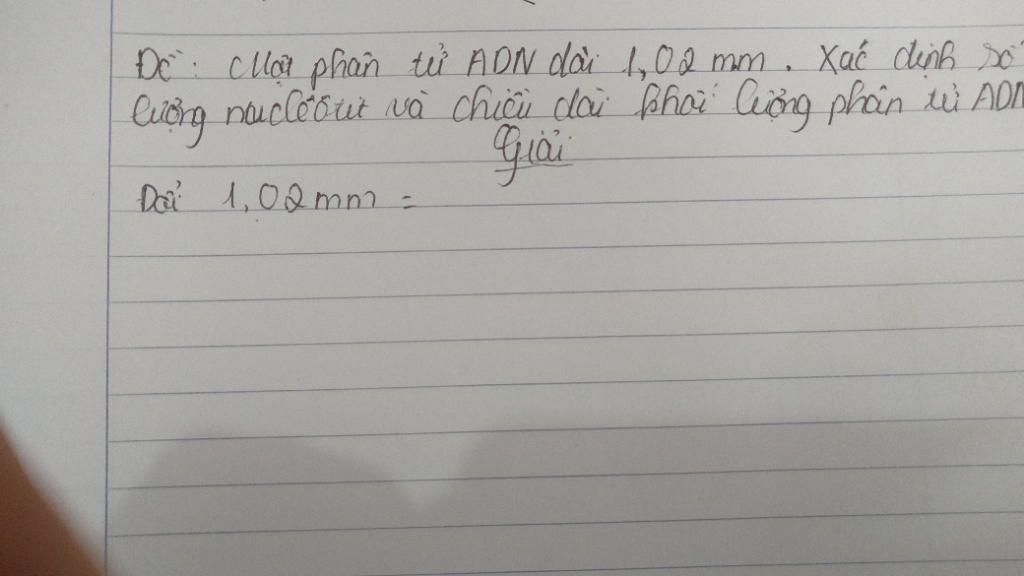 Đề: Một phân tử ADN dài 1,02 mm. Xác định số
lượng nuclêôtit và chiều dài khối lượng phân tử ADN
Giải
Đổi 1,02 mm =